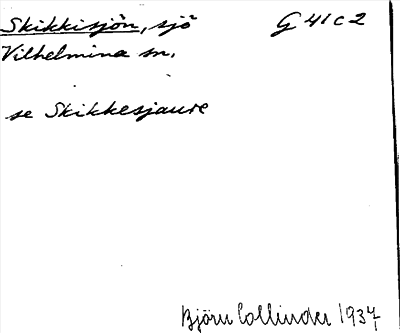 Skikkisjön, sjö G 41 c 2
Vilhelmina sn.
se Skikkesjaure
Björn Collinder 1937